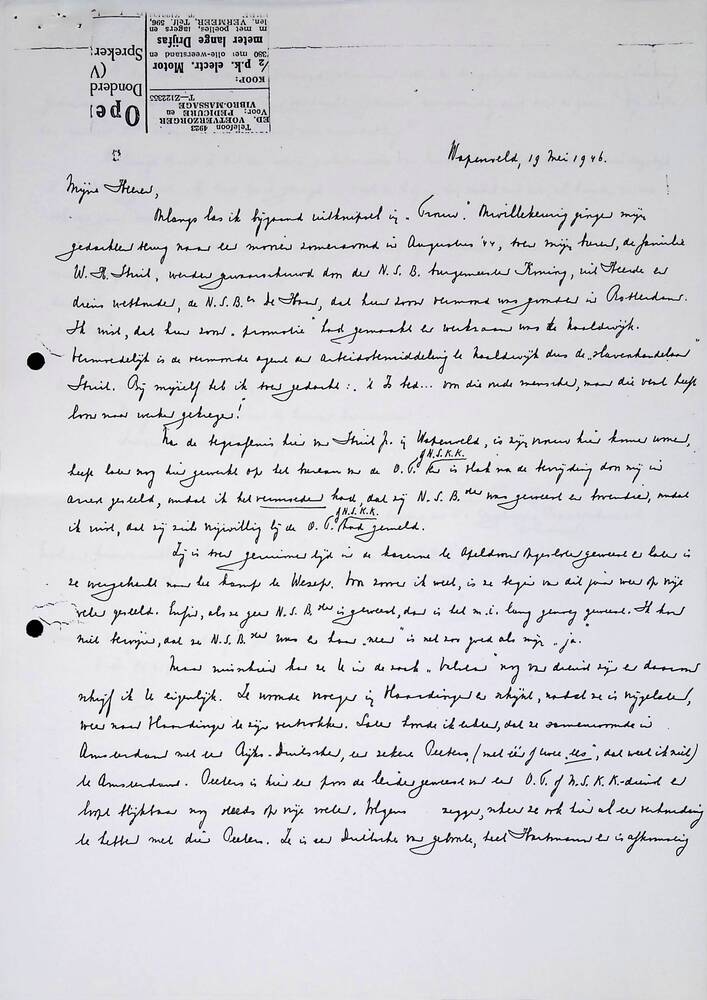 Ope
Donderd
(V
Spreker:
Telefoon 4923
ED. VOETVERZORGER
Voor: PEDICURE en
VIBRO-MASSAGE
T—Z122355
KOOP:
½ p.k. electr. Motor
380 met olie-weerstand en
meter lange Drijfas
m met poelies, lagers en
len. VERMEER, Telf. 596,
Wapenveld, 19 Mei 1946.
Mijne Heeren,
Onlangs las ik bijgaand uitknipsel in "Trouw". Onwillekeurig gingen mijn
gedachten terug naar een mooien zomeravond in Augustus '44, toen mijn buren, de familie
W. H. Struil, werden gewaarschuwd door de N.S.B. burgemeester Koning, uit Heerde en
diens wethouder, de N.S.B.er De Haas, dat hun zoon vermoord was geworden in Rotterdam.
Ik wist, dat hun zoon "promotie" had gemaakt en werkzaam was te Naaldwijk.
Vermoedelijk is de vermoorde agent der arbeidsbemiddeling te Naaldwijk dus de "slavenhandelaar"
Struil. Bij mijzelf heb ik toen gedacht: 't Is bed... voor die oude menschen, maar die vent heeft
loon naar werken gekregen!
Na de begrafenis hier van Struil Jr. in Wapenveld, is zijn vrouw hier komen wonen,
heeft later nog hier gewerkt op het bureau van de O.T. of N.S.K.K. en is vlak na de bevrijding door mij in
arrest gesteld, omdat ik het vermoeden had, dat zij N.S.B.ster was geweest en bovendien, omdat
ik wist, dat zij zich vrijwillig bij de O.T. of N.S.K.K. had gemeld.
Zij is toen geruimen tijd in de kazerne te Apeldoorn opgesloten geweest en later is
ze overgebracht naar het kamp te Wezep. Voor zoover ik weet, is ze begin van dit jaar weer op vrije
voeten gesteld. Enfin, als ze geen N.S.B.ster is geweest, dan is het m.i. lang genoeg geweest. Ik kan
niet bewijzen, dat ze N.S.B.ster was en haar "neen" is net zoo goed als mijn "ja".
Maar misschien kan ze U in de zaak nog van dienst zijn en daarom
schrijf ik U eigenlijk. Ze woonde vroeger in Vlaardingen en schijnt, nadat ze is vrijgelaten,
weer naar Vlaardingen te zijn vertrokken. Later hoorde ik echter, dat ze samenwoonde in
Amsterdam met een Rijks-Duitscher, een zekere Peeters, (met één of twee "ees", dat weet ik niet)
te Amsterdam. Peeters is hier een poos de leider geweest van een O.T. of N.S.K.K.-dienst en
loopt blijkbaar nog steeds op vrije voeten. Volgens zeggen, scheen ze ook hier al een verhouding
te hebben met dien Peeters. Ze is een Duitsche van geboorte, heet Hartmann en is afkomstig